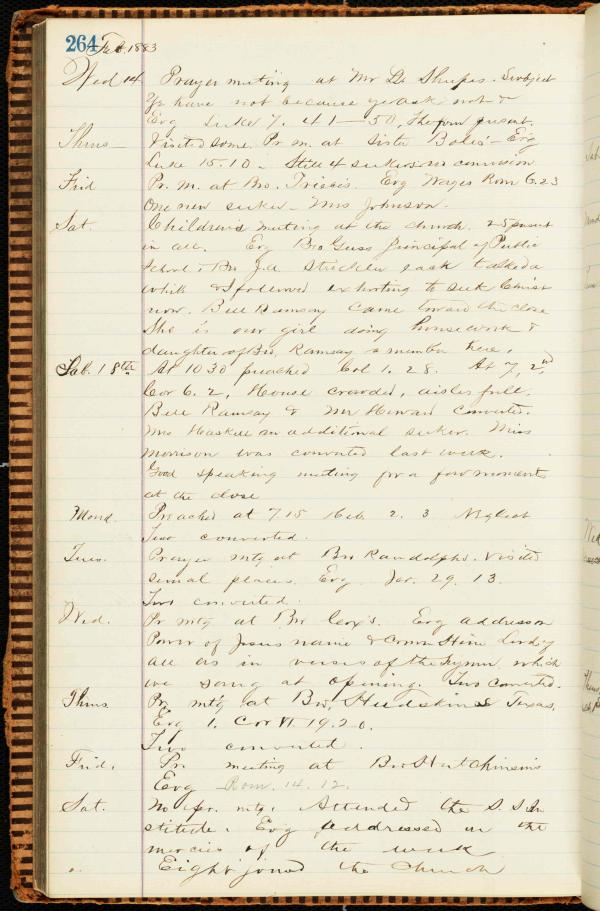 264 Feb. 1883
Wed 14 Prayer meeting at Mr De Shupes. Subject
Ye have not because ye ask not &
Evg Luke 7. 41–50.
Thurs– Visited some, Pr. m. at Sister – Evg
Luke 15.10 – Still 4 seekers no conversion
Frid Pr. M. at Bro. Evg Wages Rom 6.23
One new seeker – Mrs Johnson.
Sat. Children's meeting at the church. 25 present
in all. Evg Bro Guss Principal of Public
School & Bro J.A. Strickler each talked a
while & I followed exhorting to seek Christ
now. Bell Ramsay came toward the close
She is our girl doing housework &
daughter of Bro. Ramsay a member here.
Sab. 18th At 10 30 preached Col 1. 28. At 7, 2nd
Cor 6. 2, House crowded, aisles full.
Bell Ramsay & Mr Howard converted.
Mrs Haskell an additional seeker. Miss
Morrison was converted last week.
Good speaking meeting for a few moments
at the close
Mond. Preached at 7 15 Heb. 2. 3 Neglect
Two converted.
Tues. Prayer mtg at Bro Randolphs. Visited
several places. Evg. Jer. 29. 13.
Two converted.
Wed. Pr mtg at Bro Cox's. Evg address on
Power of Jesus name &
all as in verses of the hymn which
we sang at opening. Two converted.
Thurs Pr mtg at Bro. Hudskins Texas,
Evg 1. Cor VI 19.20.
Two converted.
Frid. Pr. meeting at Bro Hutchinsin's
Evg – Rom. 14. 12.
Sat. No pr. mtg. Attended the S. S In
stitute. Evg addressed on the
mercies of the week
Eight joined the church